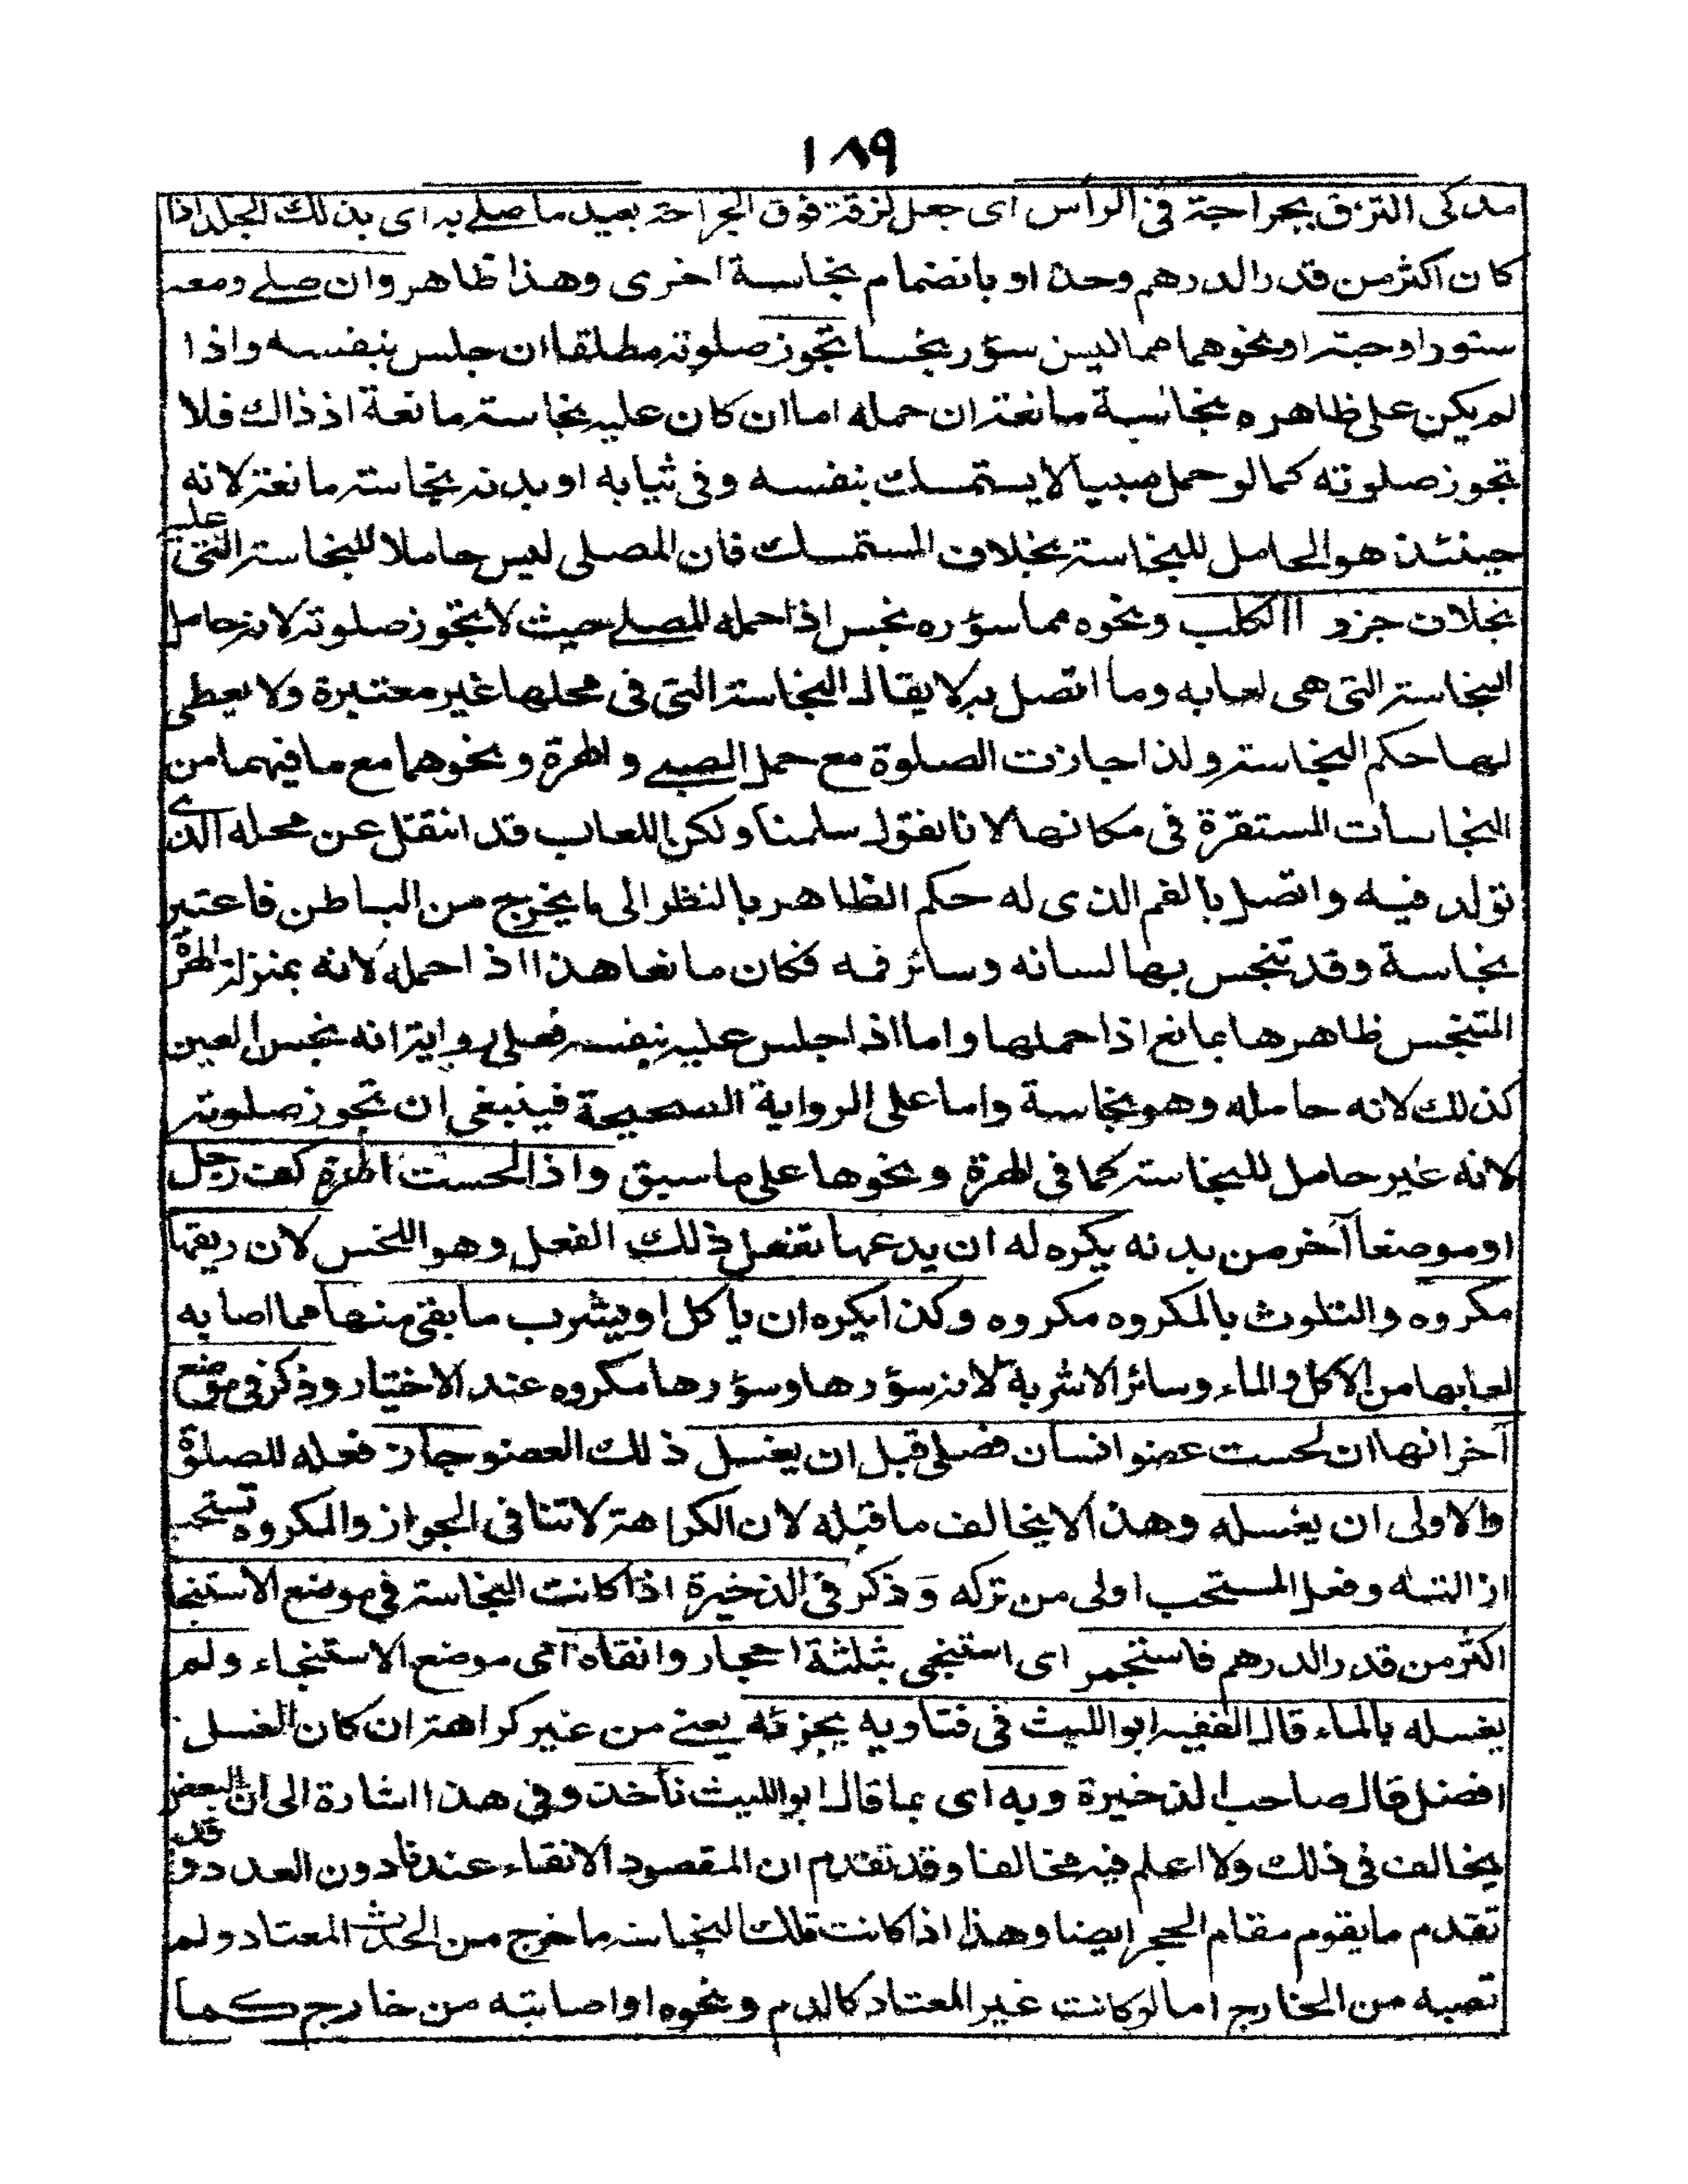 ١٨٩
مذكى التزق بجراحة فى الرأس اى جعل لزقة فوق الجراحة يعيد ما صلے به اى بذلك الجلد اذا
كان اكثر من قدر الدرهم وحده او بانضمام نجاسة اخرى وهذا ظاهر وان صلے ومعه
سنورا وحية او نحوهما مما ليس سؤره نجسا تجوز صلوته مطلقا ان جلس بنفسه واذا
لم يكن على ظاهره نجاسة مانعة ان حمله اما ان كان عليه نجاسة مانعة اذ ذاك فلا
تجوز صلوته كما لو حمل صبيا لا يستمسك بنفسه وفى ثيابه او بدنه نجاسة مانعة لانه
حينئذ هو الحامل للنجاسة بخلاف المستمسك فان المصلى ليس حاملا للنجاسة التى عليه
بخلاف جرو الكلب ونحوه مما سؤره نجس اذا حمله المصلے حيث لا تجوز صلوته لانه حامل
النجاسة التى هى لعابه وما اتصل به لا يقال النجاسة التى فى محلها غير معتبرة ولا يعطى
لها حكم النجاسة ولذا جازت الصلوة مع حمل الصبے والهرة ونحوهما مع ما فيهما من
النجاسات المستقرة فى مكانها لانا نقول سلمنا ولكن اللعاب قد انتقل عن محله الذى
تولد فيه واتصل بالفم الذى له حكم الظاهر بالنظر الى ما يخرج من الباطن فاعتبر
نجاسة وقد تنجس بها لسانه وسائر فمه فكان مانعا هذا اذا حمله لانه بمنزلة الهرة
المتنجس ظاهرها بمانع اذا حملها واما اذا جلس عليه بنفسه فعلى رواية انه نجس العين
كذلك لانه حامله وهو نجاسة واما على الرواية الصحيحة فينبغى ان تجوز صلوته
لانه غير حامل للنجاسة كما فى الهرة ونحوها على ما سبق واذا لحست الهرة كف رجل
او موضعا آخر من بدنه يكره له ان يدعها تفعل ذلك الفعل وهو اللحس لان ريقها
مكروه والتلوث بالمكروه مكروه وكذا يكره ان يأكل او يشرب ما بقى منها مما اصابه
لعابها من الاكل والماء وسائر الاشربة لانه سؤرها وسؤرها مكروه عند الاختيار وذكر فى موضع
آخر انها ان لحست عضو انسان فصلى قبل ان يغسل ذلك العضو جاز فعله للصلوة
والاولى ان يغسله وهذا لا يخالف ما قبله لان الكراهة لا تنافى الجواز والمكروه تستحب
ازالته وفعل المستحب اولى من تركه وذكر فى الذخيرة اذا كانت النجاسة فى موضع الاستنجا
اكثر من قدر الدرهم فاستجمر اى استنجى بثلثة احجار وانقاه اى موضع الاستنجاء ولم
يغسله بالماء قال الفقيه ابو الليث فى فتاويه يجزئه يعنے من غير كراهة ان كان الغسل
افضل قال صاحب الذخيرة وبه اى بما قال ابو الليث نأخذ وفى هذا اشارة الى ان البعض
يخالف فى ذلك ولا اعلم فيه مخالفا وقد تقدم ان المقصود الانقاء عندنا دون العدد وقد
تقدم ما يقوم مقام الحجر ايضا وهذا اذا كانت تلك النجاسة ما خرج من الحدث المعتاد ولم
تصبه من الخارج اما لو كانت غير المعتاد كالدم ونحوه او اصابته من خارج كما